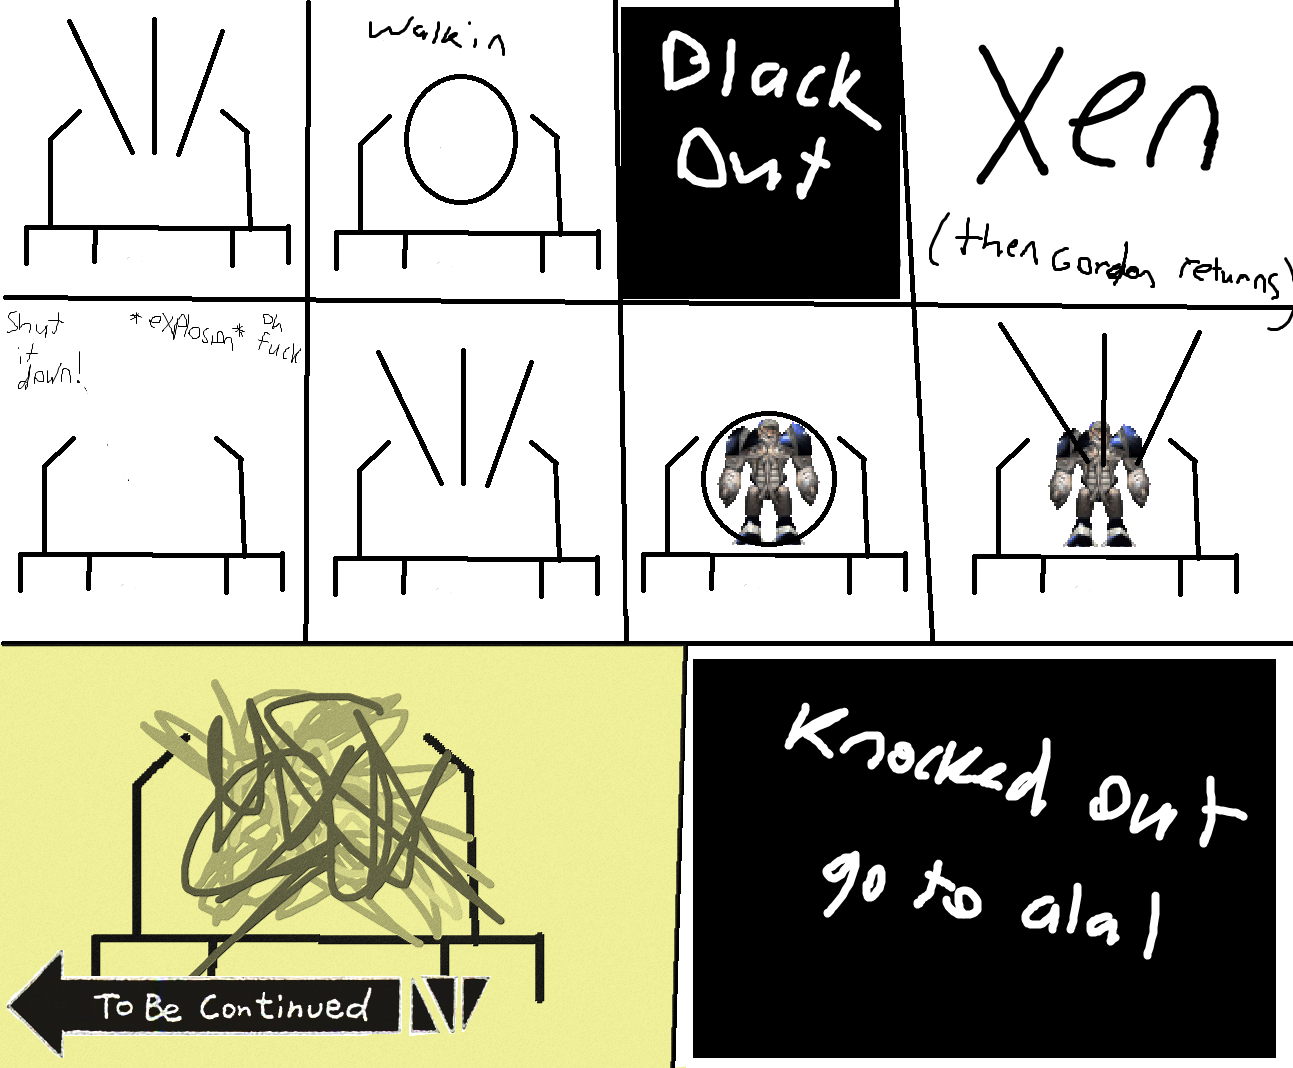 Walk in
Black
Out
Xen
(then Gordon returns)
Shut
it
down!
*explosion*
oh
fuck
To Be Continued
Knocked out
go to a1a1